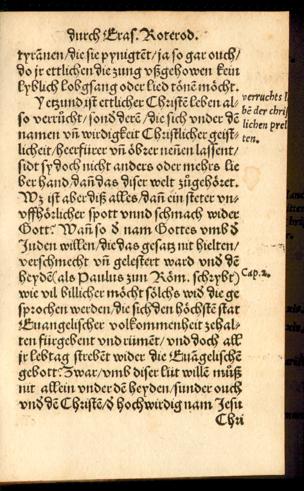 durch Eras. Roterod.
tyrãnen/die sie pynigtẽt/ja so gar ouch/
do jr ettlichen die zung vßgehowen kein
lyblich lobgsang oder lied tönẽ möcht.
Yetzund ist ettlicher Christẽ leben al-
so verrůcht/sond๛ derẽ/die sich vnder dẽ
namen vñ wirdigkeit Christlicher geist-
licheit/heerfürer vñ öbrer neñen lassent/
sidt sy doch nicht anders oder mehrs lie
ber hand/dañ das diser welt zůgehöret.
Wz ist aber diß alles/dañ ein steter vn-
vffhörlicher spott vnnd schmach wider
Gott? Wañ so d nam Gottes vmb d
Juden willen/die das gesatz nit hielten/
verschmecht vñ gelestert ward vnd dẽ
heydẽ(als Paulus zun Röm. schrybt)
wie vil billicher möcht sölchs wid die ge
sprochen werden/die sich den höchstẽ stat
Euangelischer volkommenheit zehal-
ten fürgebent vnd rümẽt/vnd doch all
jr lebtag strebẽt wider die Euãgelischẽ
gebott? Zwar/vmb diser lüt willẽ můß
nit allein vnder dẽ heyden/sunder ouch
vnd dẽ Christẽ/d hochwirdig nam Jesu
Chri
verruchts
bẽ der chris
lichen prel
ten.
Cap.2.